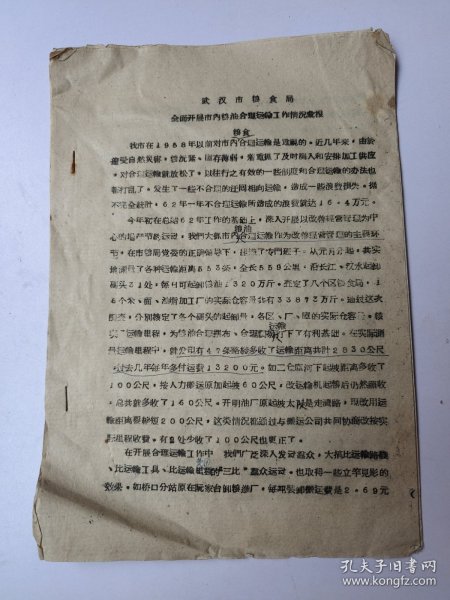 武汉市粮食局
全面开展市内粮油合理运输工作情况汇报
粮食
我市在1958年以前对市内合理运输是重视的。近几年来，由於
遭受自然灾害，情况紧，库存薄弱，着重抓了及时调入和安排加工供应，
对合理运输就放松了。以往行之有效的一些制度和合理运输的办法也
都打乱了，发生了一些不合理的迂回相向运输，造成一些浪费损失。据
不完全统计，62年一年不合理运输所造成的浪费就达16.4万元。
今年初在总结62年工作的基础上，深入开展以改善经营管理为中
心的增产节约运动，我们大抓市内合理运输作为改善经营管理的主要环
粮油
节，在市粮局党委的正确领导下，组织了专门班子，从元月分起，共实
地测量了各种运输距离553条，全长559公里，沿长江、汉水起卸
码头31处，每日可起卸粮油1320万斤，查定了八个区粮食局，1
6个米、面、油粮加工厂的实际仓容量共有33873万斤，通过这次
调查，分别核定了各个码头的起卸量，各区、厂、库的实际仓容量、核
实了运输里程，为粮油合理摆布、合理运输打下了有利基础。在实际测
运输
量运输里程中，就发现有47条路线多收了运输距离共计2830公尺
过去几年每年多付运费13200元。如二仓库河下起坡距离多收了
100公尺，按人力搬运原加起坡60公尺，改运输机起卸后仍然照收
，总共就多收了160公尺。开明油厂原起坡太陡是走湖路，现改用运
输距离要缩短200公尺，这类情况都通过与搬运公司共同协商改按实
际里程收费，有些处少收了100公尺也更正了。
在开展合理运输工作中，我们广泛深入发动群众，大搞比运输路线
、比运输工具、比运输里程的“三比”群众运动，也取得一些立竿见影的
效果。如桥口分站原在阮家台卸粮进厂，每吨装卸搬运费是2.69元
孔夫子旧书网
www.kongfz.com